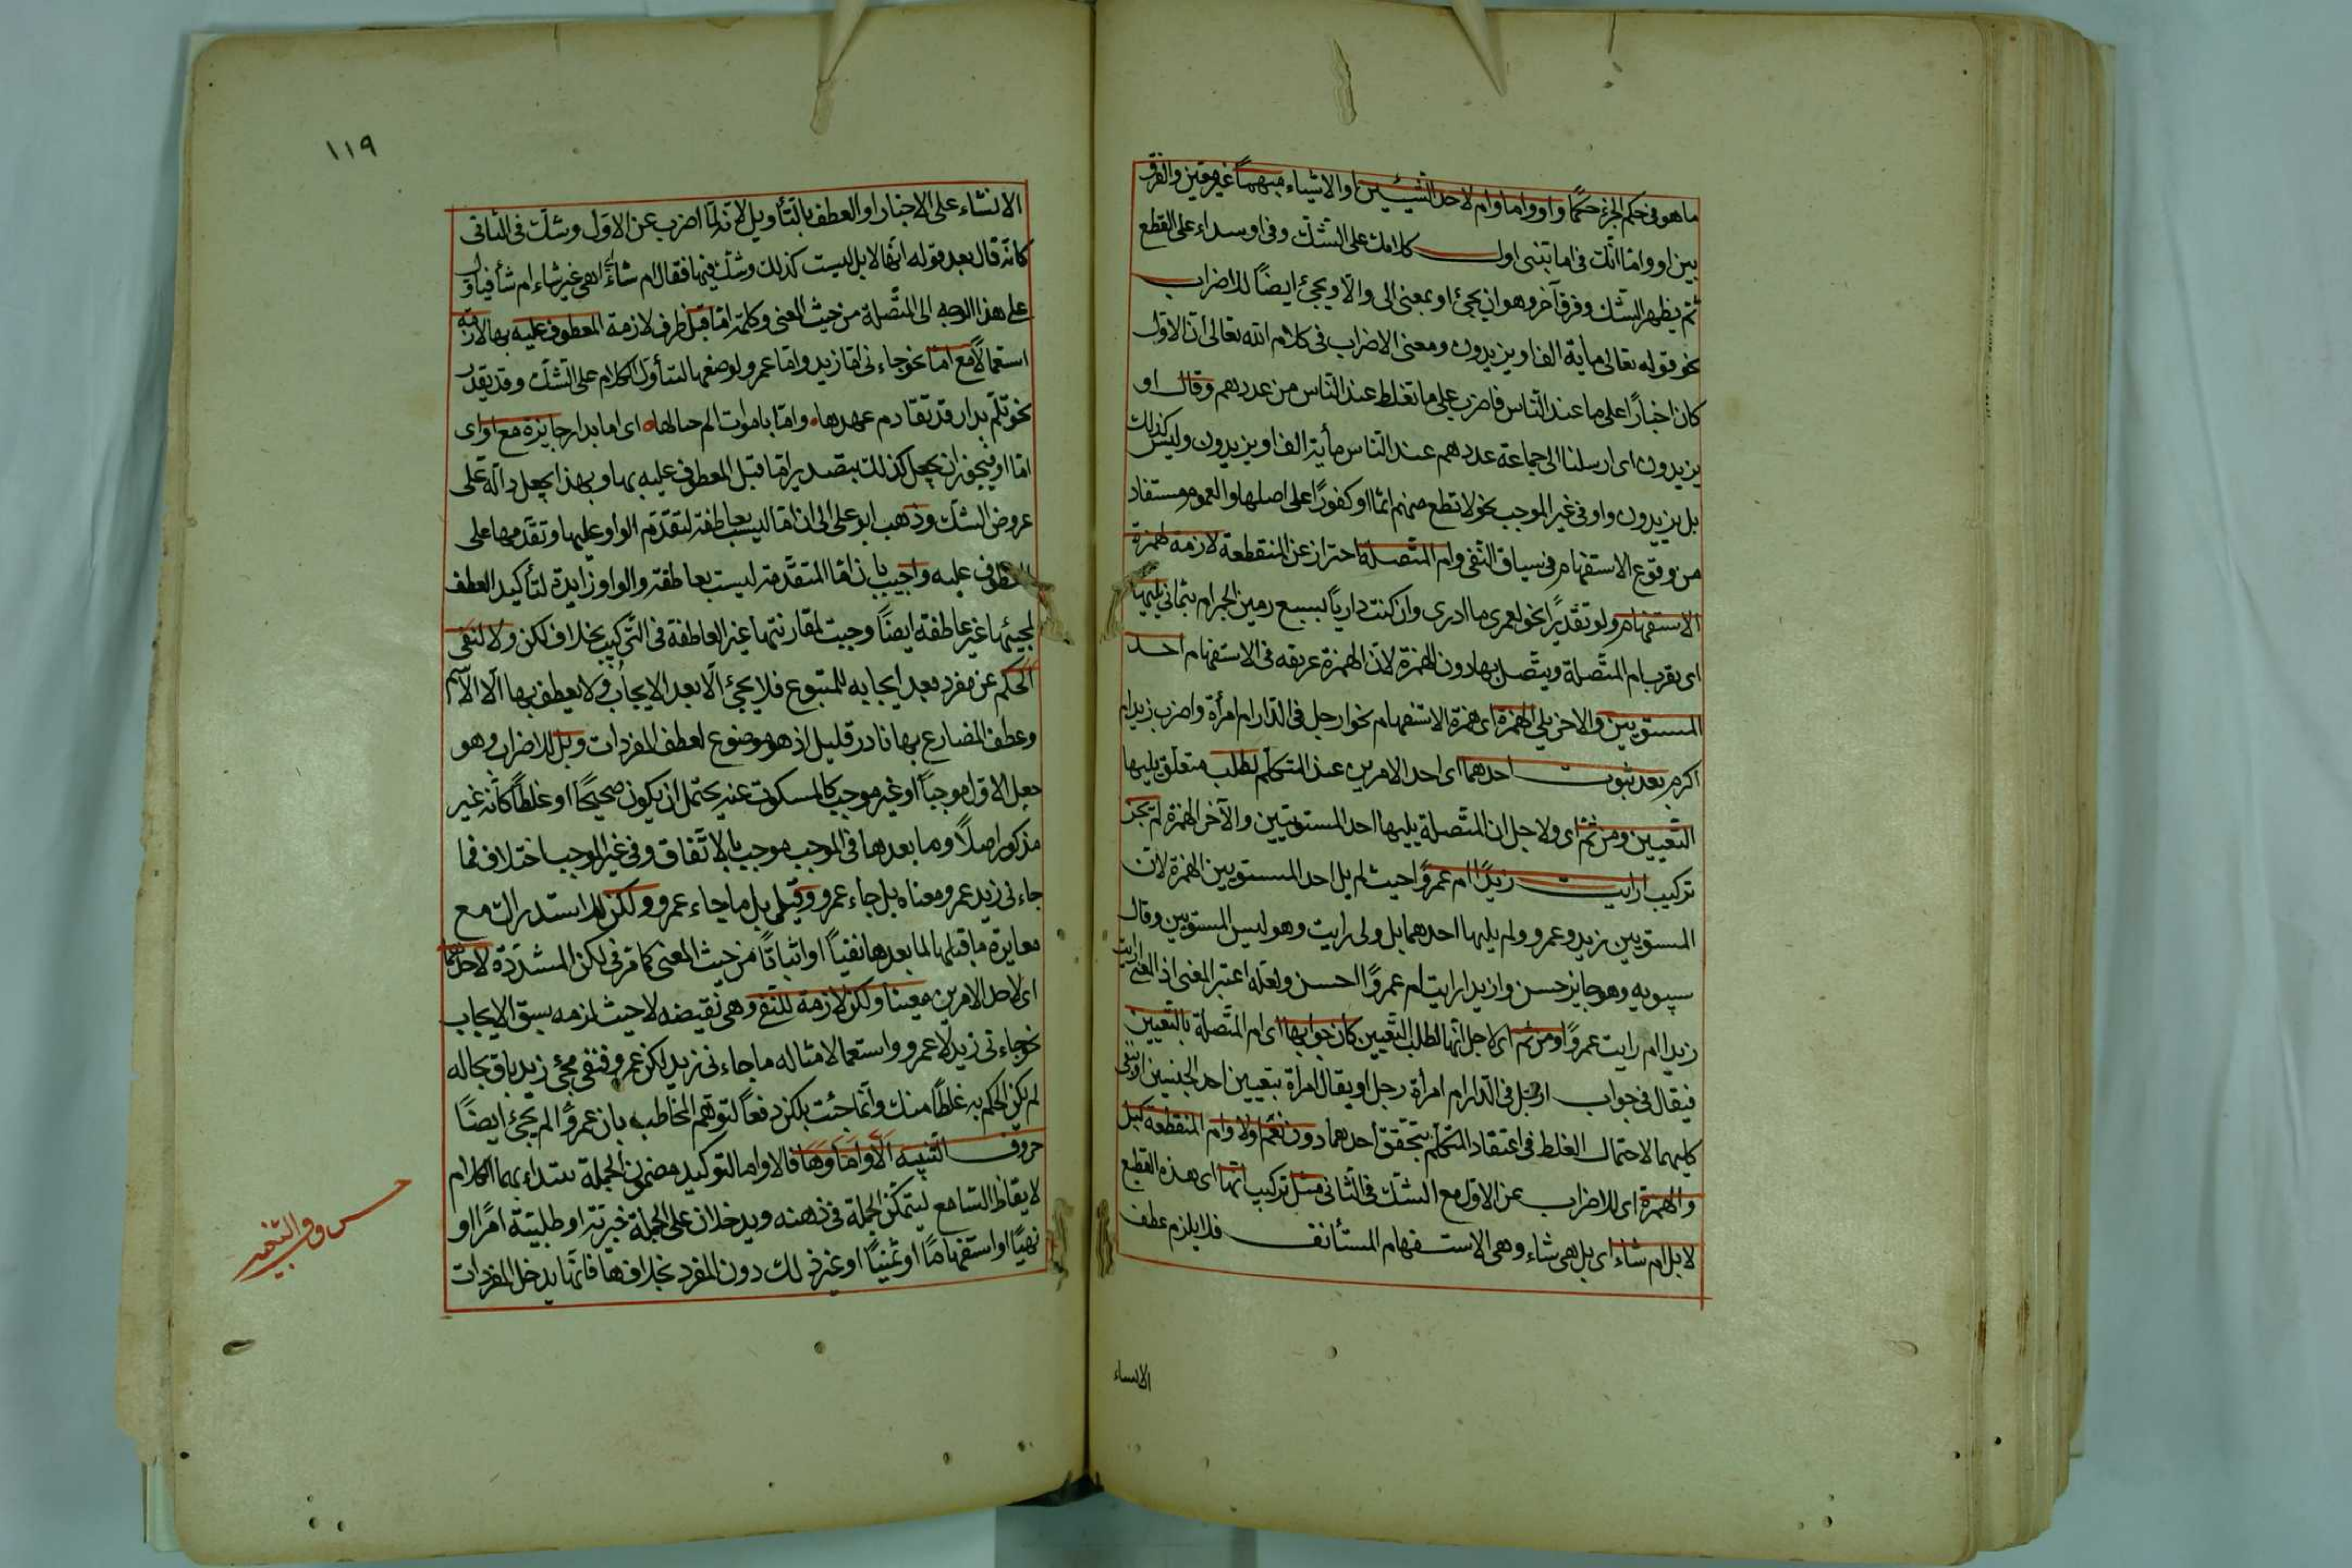 ما هو فى حكم الجزء حكمًا واو واما وام لاحد الشيئين او الاشياء مبهمًا غير معين والفرق
بين او واما انك فى اما تبنى اول كلامك على الشك وفى او سداء على القطع
ثم يظهر الشك وفرق آخر وهو ان يجئ او بمعنى الى والّا ويجئ ايضًا للاضراب
نحو قوله تعالى ماية الف او يزيدون ومعنى الاضراب فى كلام الله تعالى ان الاول
كان اخبارًا على ما عند الناس فاضرب على ما تغلط عند الناس من عددهم وقال او
يزيدون اى ارسلنا الى جماعة عددهم عند الناس مأية الف او يزيدون وليس كذلك
بل يزيدون واو فى غير الموجب نحو لا تطع منهم اثما او كفورًا على اصلها والعموم مستفاد
من وقوع الاستفهام فى سياق النفى وام المتصلة احتراز عن المنقطعة لازمة لهمزة
الاستفهام ولو تقديرًا نحو لعمرى ما ادرى وان كنت داريًا بسبع رمين الجمر ام بثمانى يليها
اى يقرب ام المتصلة ويتصل بها دون الهمزة لان الهمزة عريقه فى الاستفهام احد
المستويين والاخر يلى الهمزة اى همزة الاستفهام نحو ارجل فى الدار ام امرأة واضرب زيدا ام
اكرم بعد ثبوت احدهما اى احد الامرين عند المتكلم لطلب متعلق يليها
التعيين ومن ثم اى ولاجل ان المتصلة يليها احد المستويتين والآخر الهمزة لم يجز
تركيب ارايت زيدًا ام عمروًا حيث لم يل احد المستويين الهمزة لان
المستويين زيد وعمرو ولم يليها احدهما بل ولى رايت وهو ليس المستويين وقال
سيبويه وهو جايز حسن وازيدا رايت ام عمروًا احسن ولعله اعتبر المعنى اذ المعنى ارايت
زيدا ام رايت عمروًا ومن ثم اى لاجل انها لطلب التعيين كان جوابها اى ام المتصلة بالتعيين
فيقال فى جواب ارجل فى الدار ام امرأة رجل او يقال امرأة بتعيين احد الجنسين او بنفى
كليهما لاحتمال الغلط فى اعتقاد المتكلم بتحقق احدهما دون نعم اولا وام المنقطعة كبل
والهمزة اى للاضراب عن الاول مع الشك فى الثانى مثل تركيب انها اى هذه القطيع
لابل ام شاء اى بل هى شاء وهى الاستفهام المستأنف فلا يلزم عطف
الانساء
١١٩
الانشاء على الاخبار او العطف بالتأويل لانه لما اضرب عن الاول وشك فى الثانى
كانه قال بعد قوله انها لابل ليست كذلك وشك فيها فقال ام شاء اى اهى غير شاء ام شأ فيأول
على هذا الوجه الى المتصلة من حيث المعنى وكلمة اما قبل ظرف لازمة المعطوف عليه بها لازمة
استعمالًا مع اما نحو جاءنى اما زيد واما عمرو لوضعها لتأول الكلام على الشك وقد يقدر
نحو تلم بدار قد تقادم عهدها واما باموات الم خيالها اى اما بدار جايزة مع او اى
اما او فيجوز ان يجعل كذلك بتصدير اما قبل المعطوف عليه بها وبهذا يجعل دالة على
عروض الشك وذهب ابو على الى ان اما ليست بعاطفة لتقدم الواو عليها وتقدمها على
المعطوف عليه واجيب بان اما المتقدمة ليست بعاطفة والواو زايدة لتأكيد العطف
لمجيئها غير عاطفة ايضًا وجبت لمقارنتها غير العاطفة فى التركيب بخلاف لكن ولا لنفى
الحكم عن مفرد بعد ايجابه للمتبوع فلا يجئ الا بعد الايجاب ولا يعطف بها الا الاسم
وعطف المضارع بها نادر قليل اذ هو موضوع لعطف المفردات وبل للاضراب وهو
جعل الاول موجبًا او غير موجب كالمسكوت عنه يحتمل ان يكون صحيحًا او غلطًا كانه غير
مذكور اصلًا وما بعدها فى الموجب موجب بالاتفاق وفى غير الموجب اختلاف فما
جاءنى زيد عمرو معناه بل جاء عمرو وقيل بل ما جاء عمرو ولكن للاستدراك مع
مغايرة ما قبلها لما بعدها نفيًا او اثباتًا من حيث المعنى كما مر فى لكن المشددة لاحدهما
اى لاحد الامرين معينا ولكن لازمة للنفى وهى نقيضه لا حيث لزمه سبق الايجاب
نحو جاءنى زيد لا عمرو واستعمالا مثاله ما جاءنى زيد لكن عمرو فنفى مجئ زيد باق بحاله
لم يكن الحكم به غلطًا منك وانما جئت بلكن دفعًا لتوهم المخاطب بان عمروًا لم يجئ ايضًا
حروف التنبيه ألا وأما وها فالا واما لتوكيد مضمون الجملة يبتداء بهما الكلام
لايقاظ السامع ليتمكن الجملة فى ذهنه ويدخلان على الجملة خبرية او طلبية امرًا او
نهيًا او استفهامًا او تمنيًا او غير ذلك دون المفرد بخلاف ها فانها يدخل المفردات
حروف التنبيه